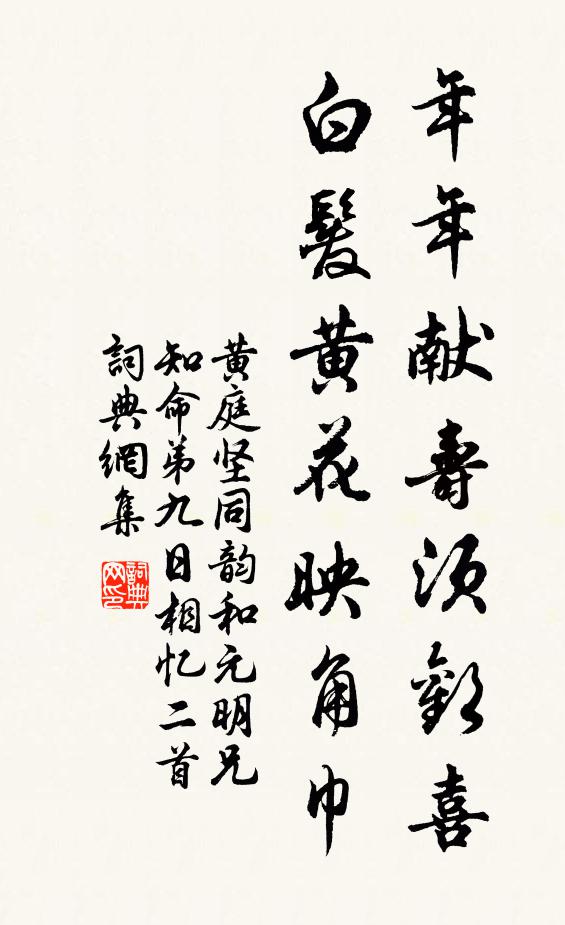 年年献壽須歡喜
白髮黄花映角巾
黄庭坚同韵和元明兄
知命弟九日相忆二首
詞典網集
詞典
网印